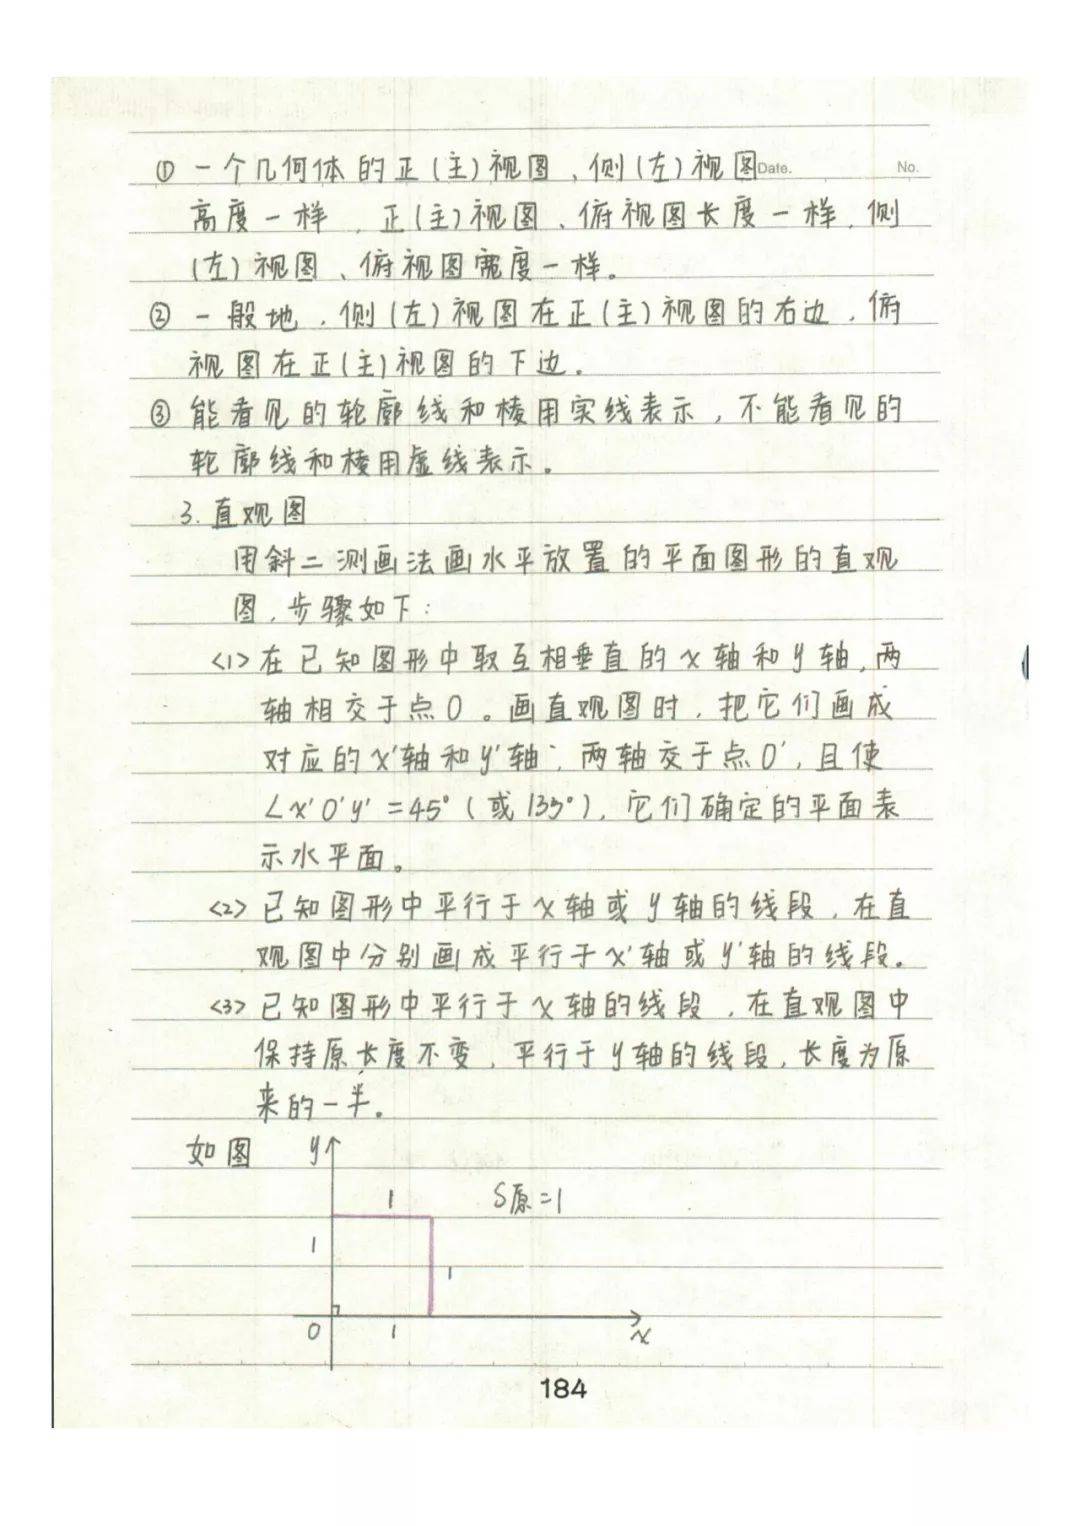 ① 一个几何体的正(主)视图、侧(左)视图 Date. No.
高度一样，正(主)视图、俯视图长度一样，侧
(左)视图、俯视图宽度一样。
② 一般地，侧(左)视图在正(主)视图的右边，俯
视图在正(主)视图的下边。
③ 能看见的轮廓线和棱用实线表示，不能看见的
轮廓线和棱用虚线表示。
3. 直观图
用斜二测画法画水平放置的平面图形的直观
图，步骤如下：
<1> 在已知图形中取互相垂直的x轴和y轴，两
轴相交于点O。画直观图时，把它们画成
对应的x'轴和y'轴；两轴交于点O'，且使
∠x'O'y'=45°(或135°)，它们确定的平面表
示水平面。
<2> 已知图形中平行于x轴或y轴的线段，在直
观图中分别画成平行于x'轴或y'轴的线段。
<3> 已知图形中平行于x轴的线段，在直观图中
保持原长度不变，平行于y轴的线段，长度为原
来的一半。
如图 y
1 S原=1
1
1
O 1 x
184